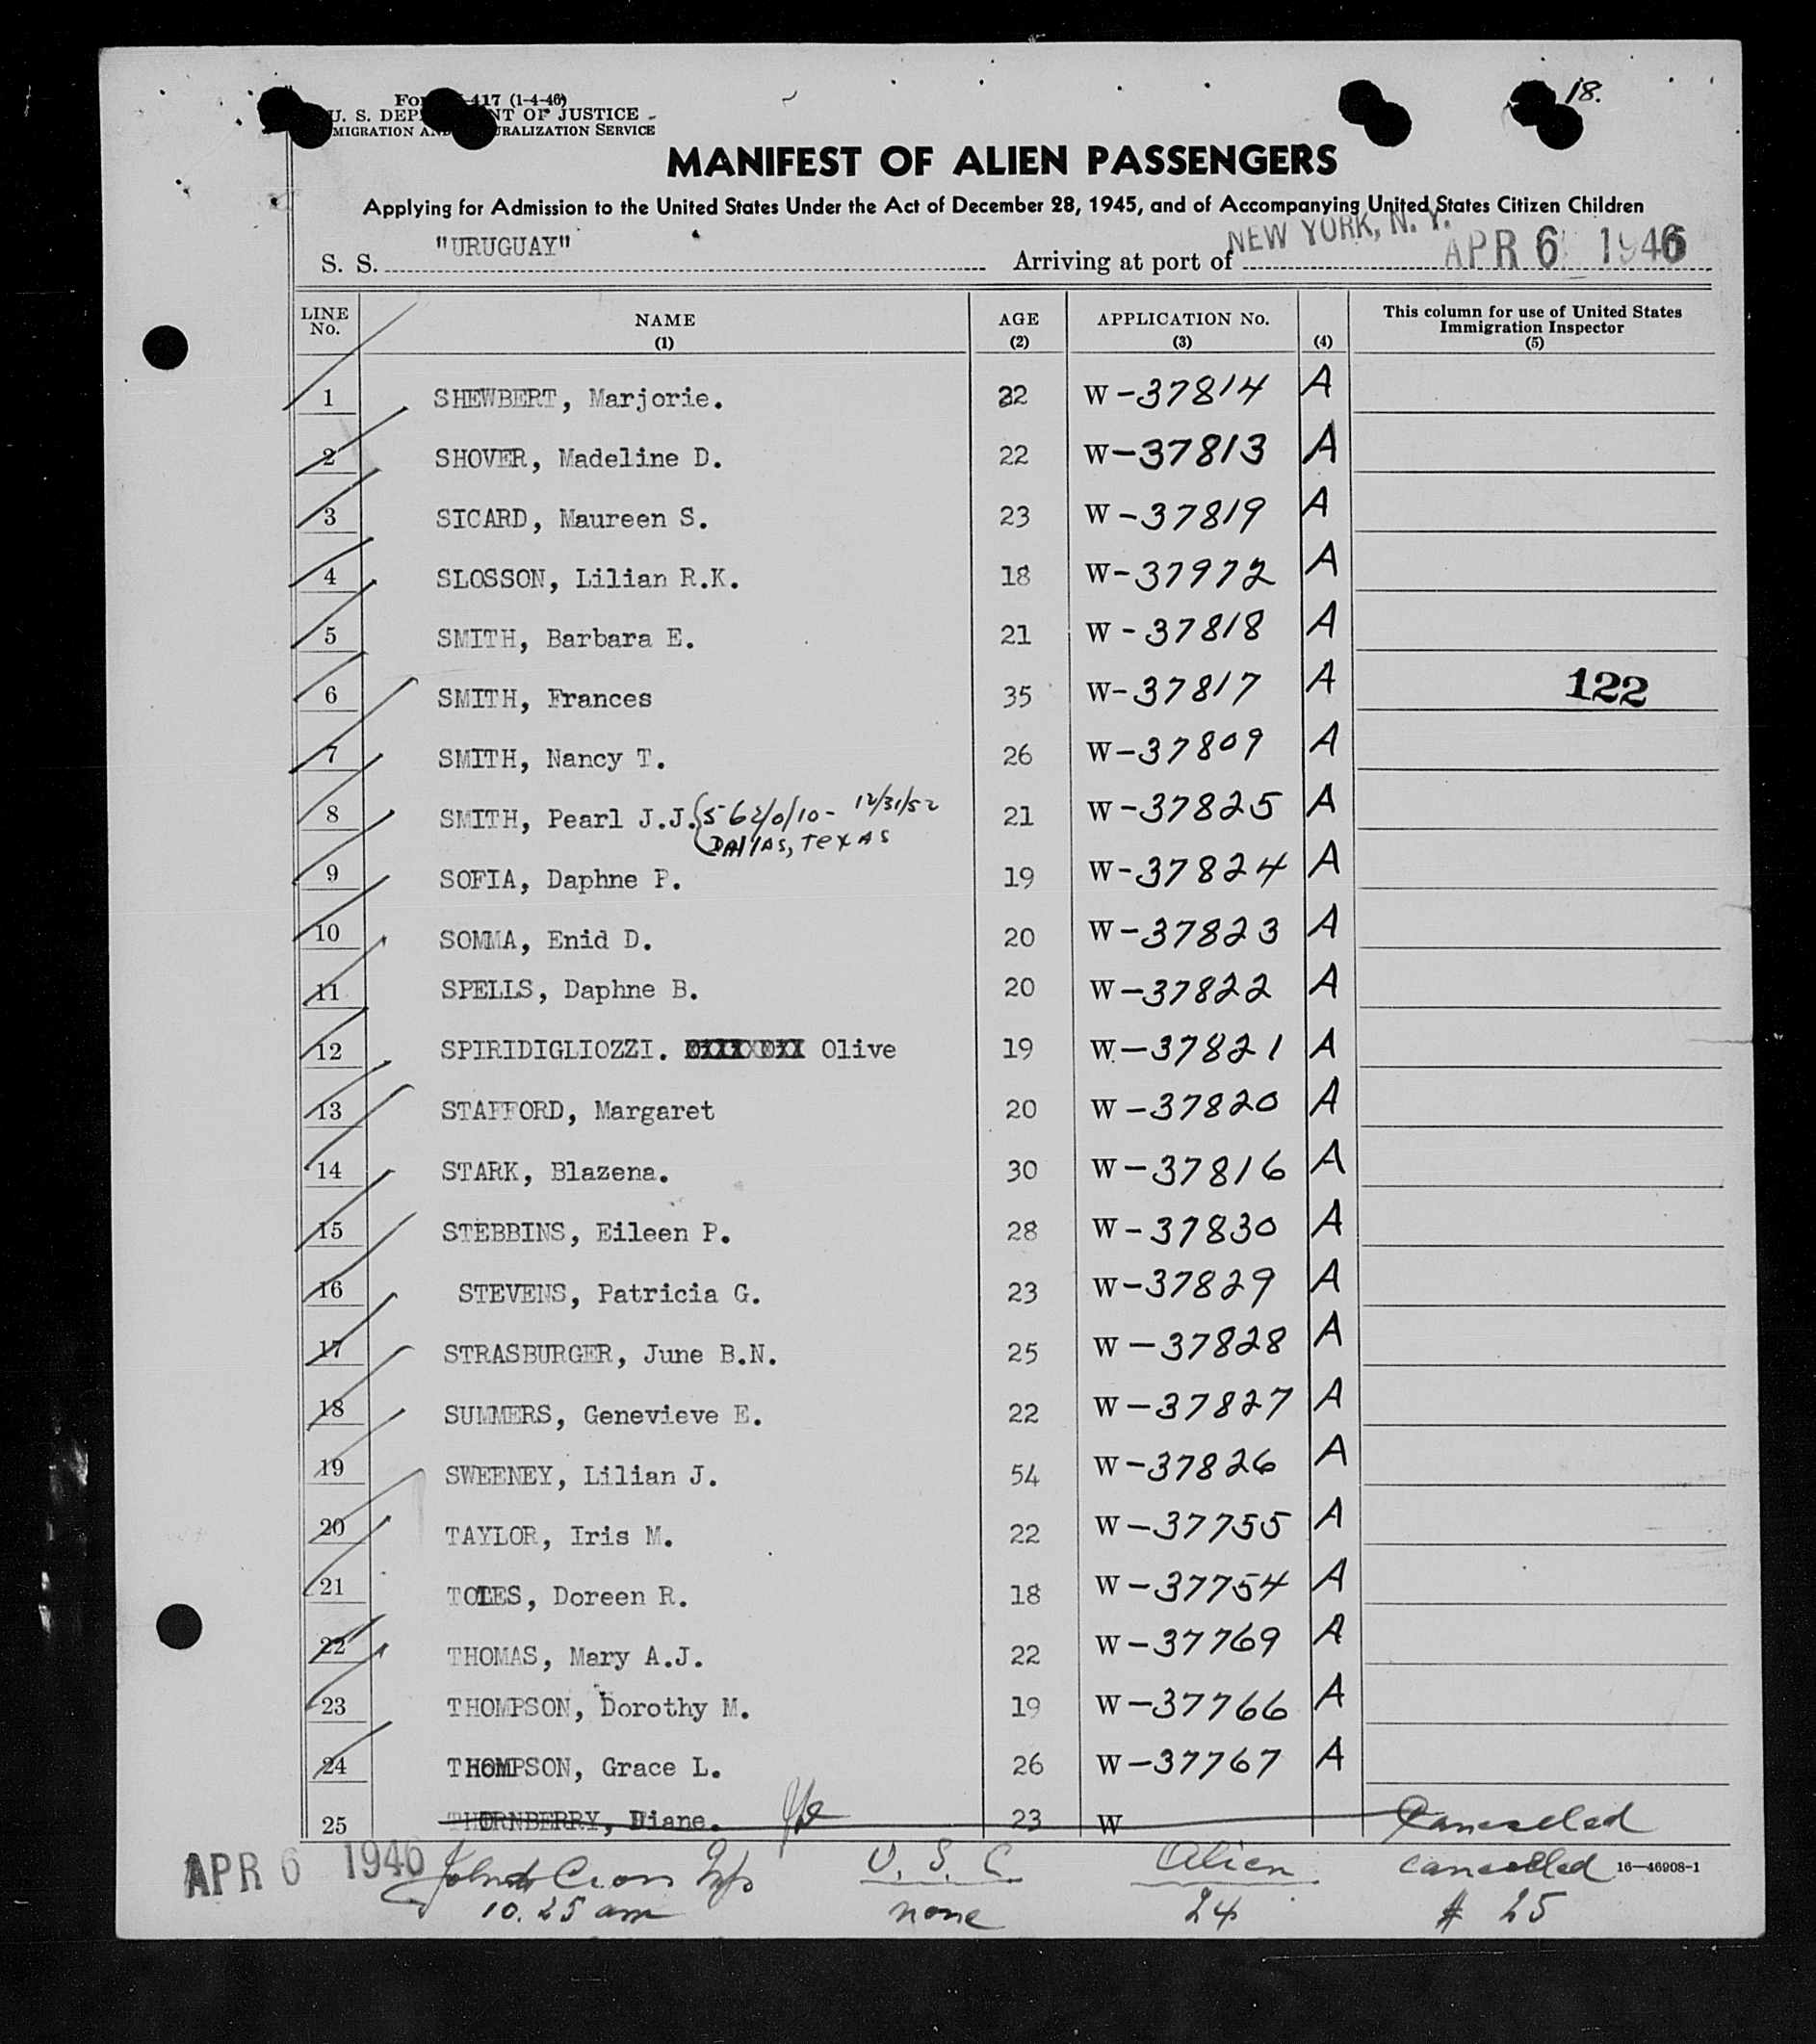 18.
Form 417 (1-4-46)
U. S. DEPARTMENT OF JUSTICE
IMMIGRATION AND NATURALIZATION SERVICE
MANIFEST OF ALIEN PASSENGERS
Applying for Admission to the United States Under the Act of December 28, 1945, and of Accompanying United States Citizen Children
S. S. "URUGUAY" Arriving at port of NEW YORK, N. Y. APR 6 1946
LINE No. NAME (1) AGE (2) APPLICATION No. (3) (4) This column for use of United States Immigration Inspector (5)
1 SHEWBERT, Marjorie. 22 W-37814 A
2 SHOVER, Madeline D. 22 W-37813 A
3 SICARD, Maureen S. 23 W-37819 A
4 SLOSSON, Lilian R.K. 18 W-37972 A
5 SMITH, Barbara E. 21 W-37818 A
6 SMITH, Frances 35 W-37817 A 122
7 SMITH, Nancy T. 26 W-37809 A
8 SMITH, Pearl J.J. 562/0/10- 12/31/52 21 W-37825 A
DAllAS, TexAS
9 SOFIA, Daphne P. 19 W-37824 A
10 SOMMA, Enid D. 20 W-37823 A
11 SPELLS, Daphne B. 20 W-37822 A
12 SPIRIDIGLIOZZI. Olive 19 W-37821 A
13 STAFFORD, Margaret 20 W-37820 A
14 STARK, Blazena. 30 W-37816 A
15 STEBBINS, Eileen P. 28 W-37830 A
16 STEVENS, Patricia G. 23 W-37829 A
17 STRASBURGER, June B.N. 25 W-37828 A
18 SUMMERS, Genevieve E. 22 W-37827 A
19 SWEENEY, Lilian J. 54 W-37826 A
20 TAYLOR, Iris M. 22 W-37755 A
21 TOLES, Doreen R. 18 W-37754 A
22 THOMAS, Mary A.J. 22 W-37769 A
23 THOMPSON, Dorothy M. 19 W-37766 A
24 THOMPSON, Grace L. 26 W-37767 A
25 THORNBERRY, Diane. 23 W Cancelled
APR 6 1946 U. S. C. Alien cancelled 16—46908-1
10.25 am none 24 # 25